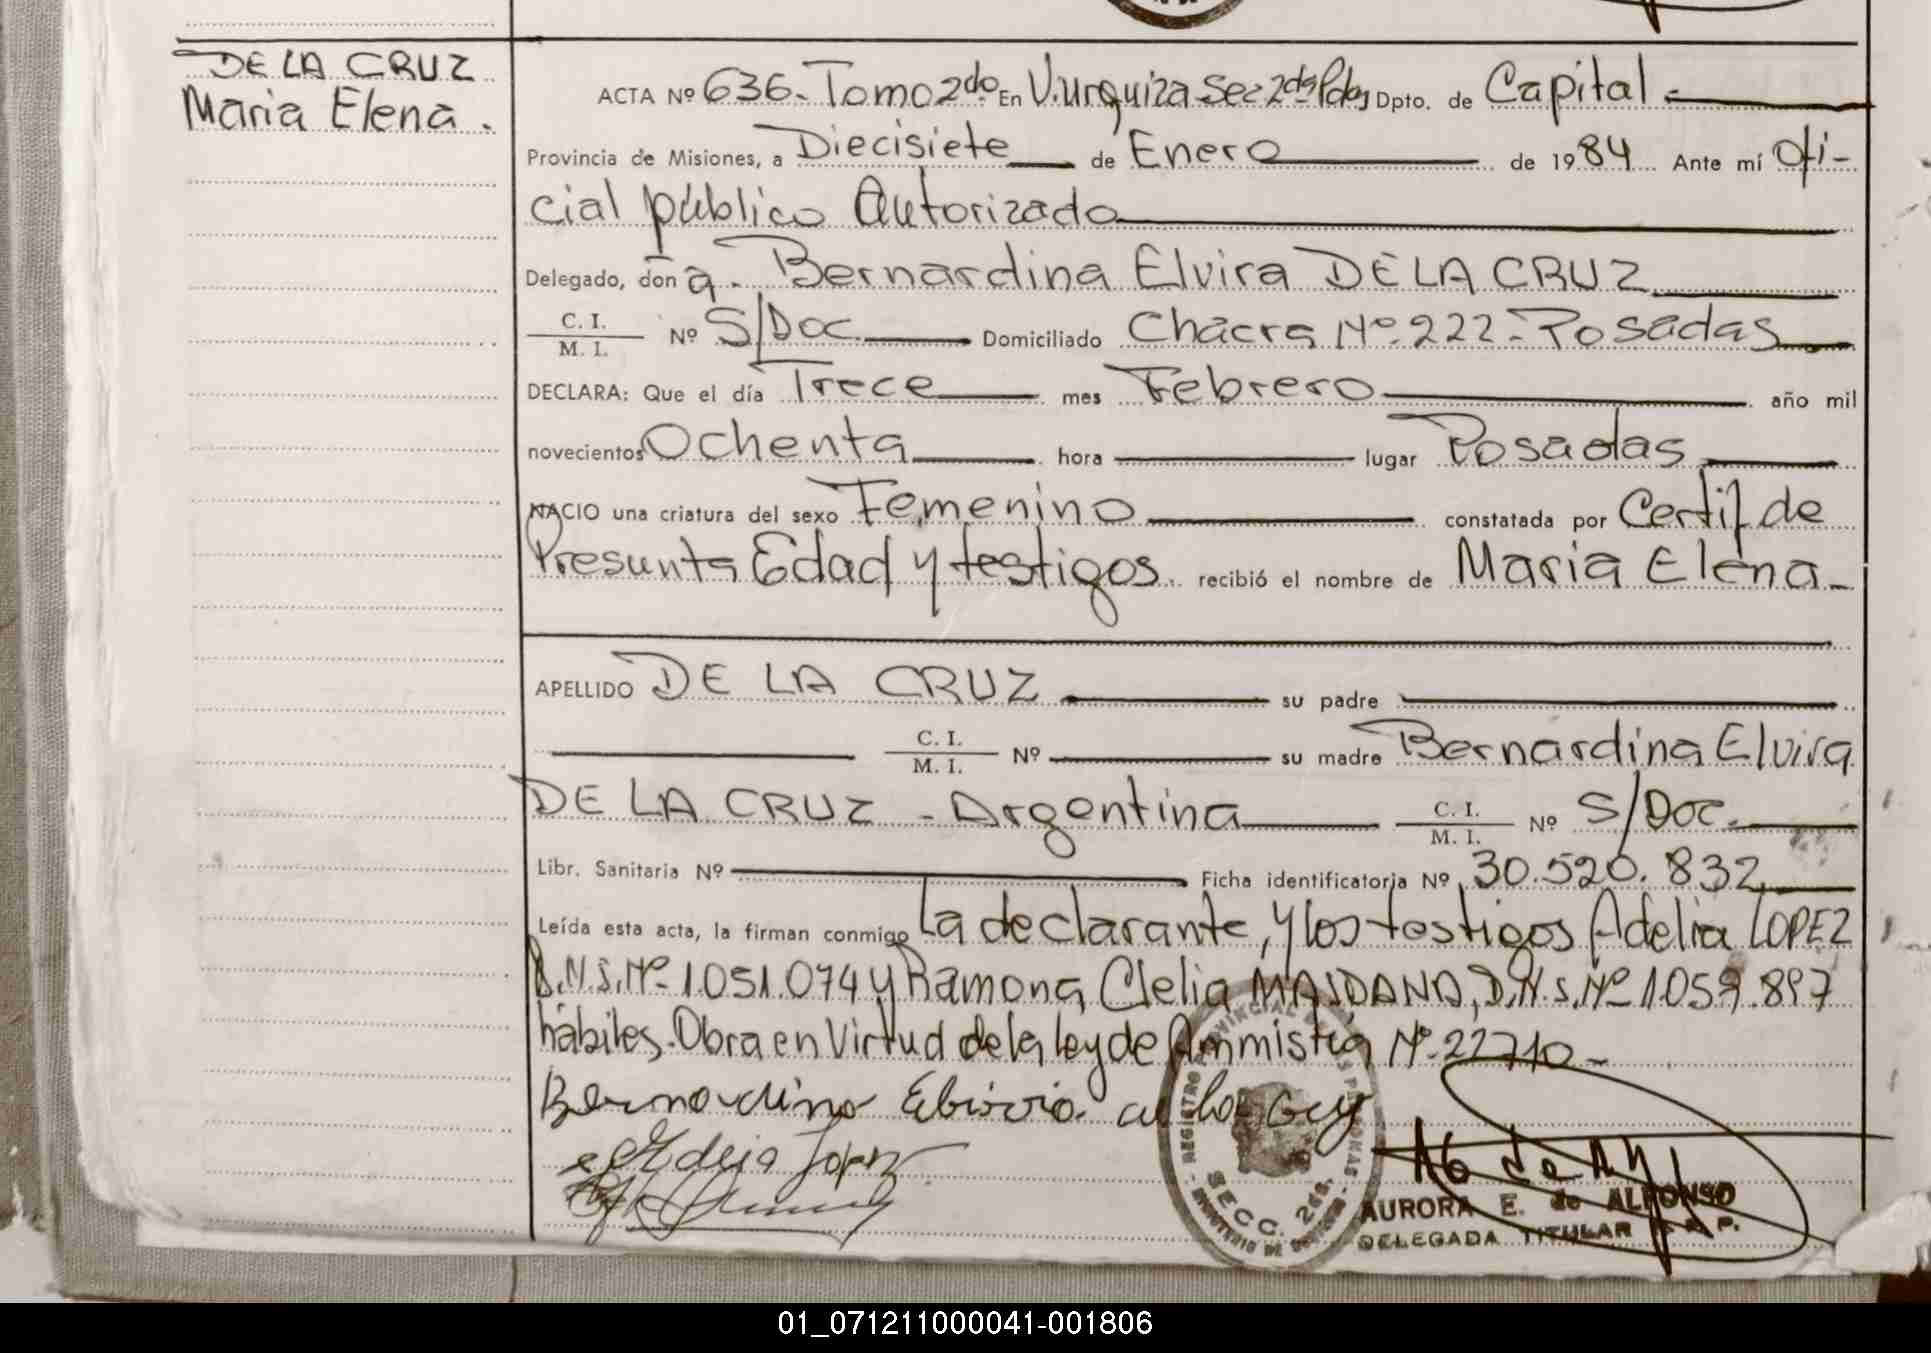 DE LA CRUZ
Maria Elena.
ACTA Nº 636-Tomo 2do En V.urquiza Sec 2da Pdas Dpto. de Capital-
Provincia de Misiones, a Diecisiete de Enero de 1984 Ante mí Ofi-
cial público Autorizado
Delegado, don a. Bernardina Elvira DE LA CRUZ
C. I.
M. I. Nº S/Doc. Domiciliado Chacra Nº 222-Posadas
DECLARA: Que el día Trece mes Febrero año mil
novecientos Ochenta hora lugar Posadas
NACIO una criatura del sexo Femenino constatada por Certif de
Presunta Edad y testigos recibió el nombre de Maria Elena-
APELLIDO DE LA CRUZ su padre
C. I.
M. I. Nº su madre Bernardina Elvira
DE LA CRUZ - Argentina C. I.
M. I. Nº S/Doc.
Libr. Sanitaria Nº Ficha identificatoria Nº 30.520.832
Leída esta acta, la firman conmigo La declarante, y los testigos Adelia LOPEZ
Nº 1.051.074 y Ramona Clelia MAIDANA, Nº 1.059.897
hábiles. Obra en Virtud de la ley de Ammistia Nº 22710-
Bernardina
Lopez
REGISTRO PROVINCIAL DE LAS PERSONAS
SECC. 2da.
MINISTERIO DE GOBIERNO
AURORA E. de ALFONSO
DELEGADA TITULAR R. P.
01_071211000041-001806